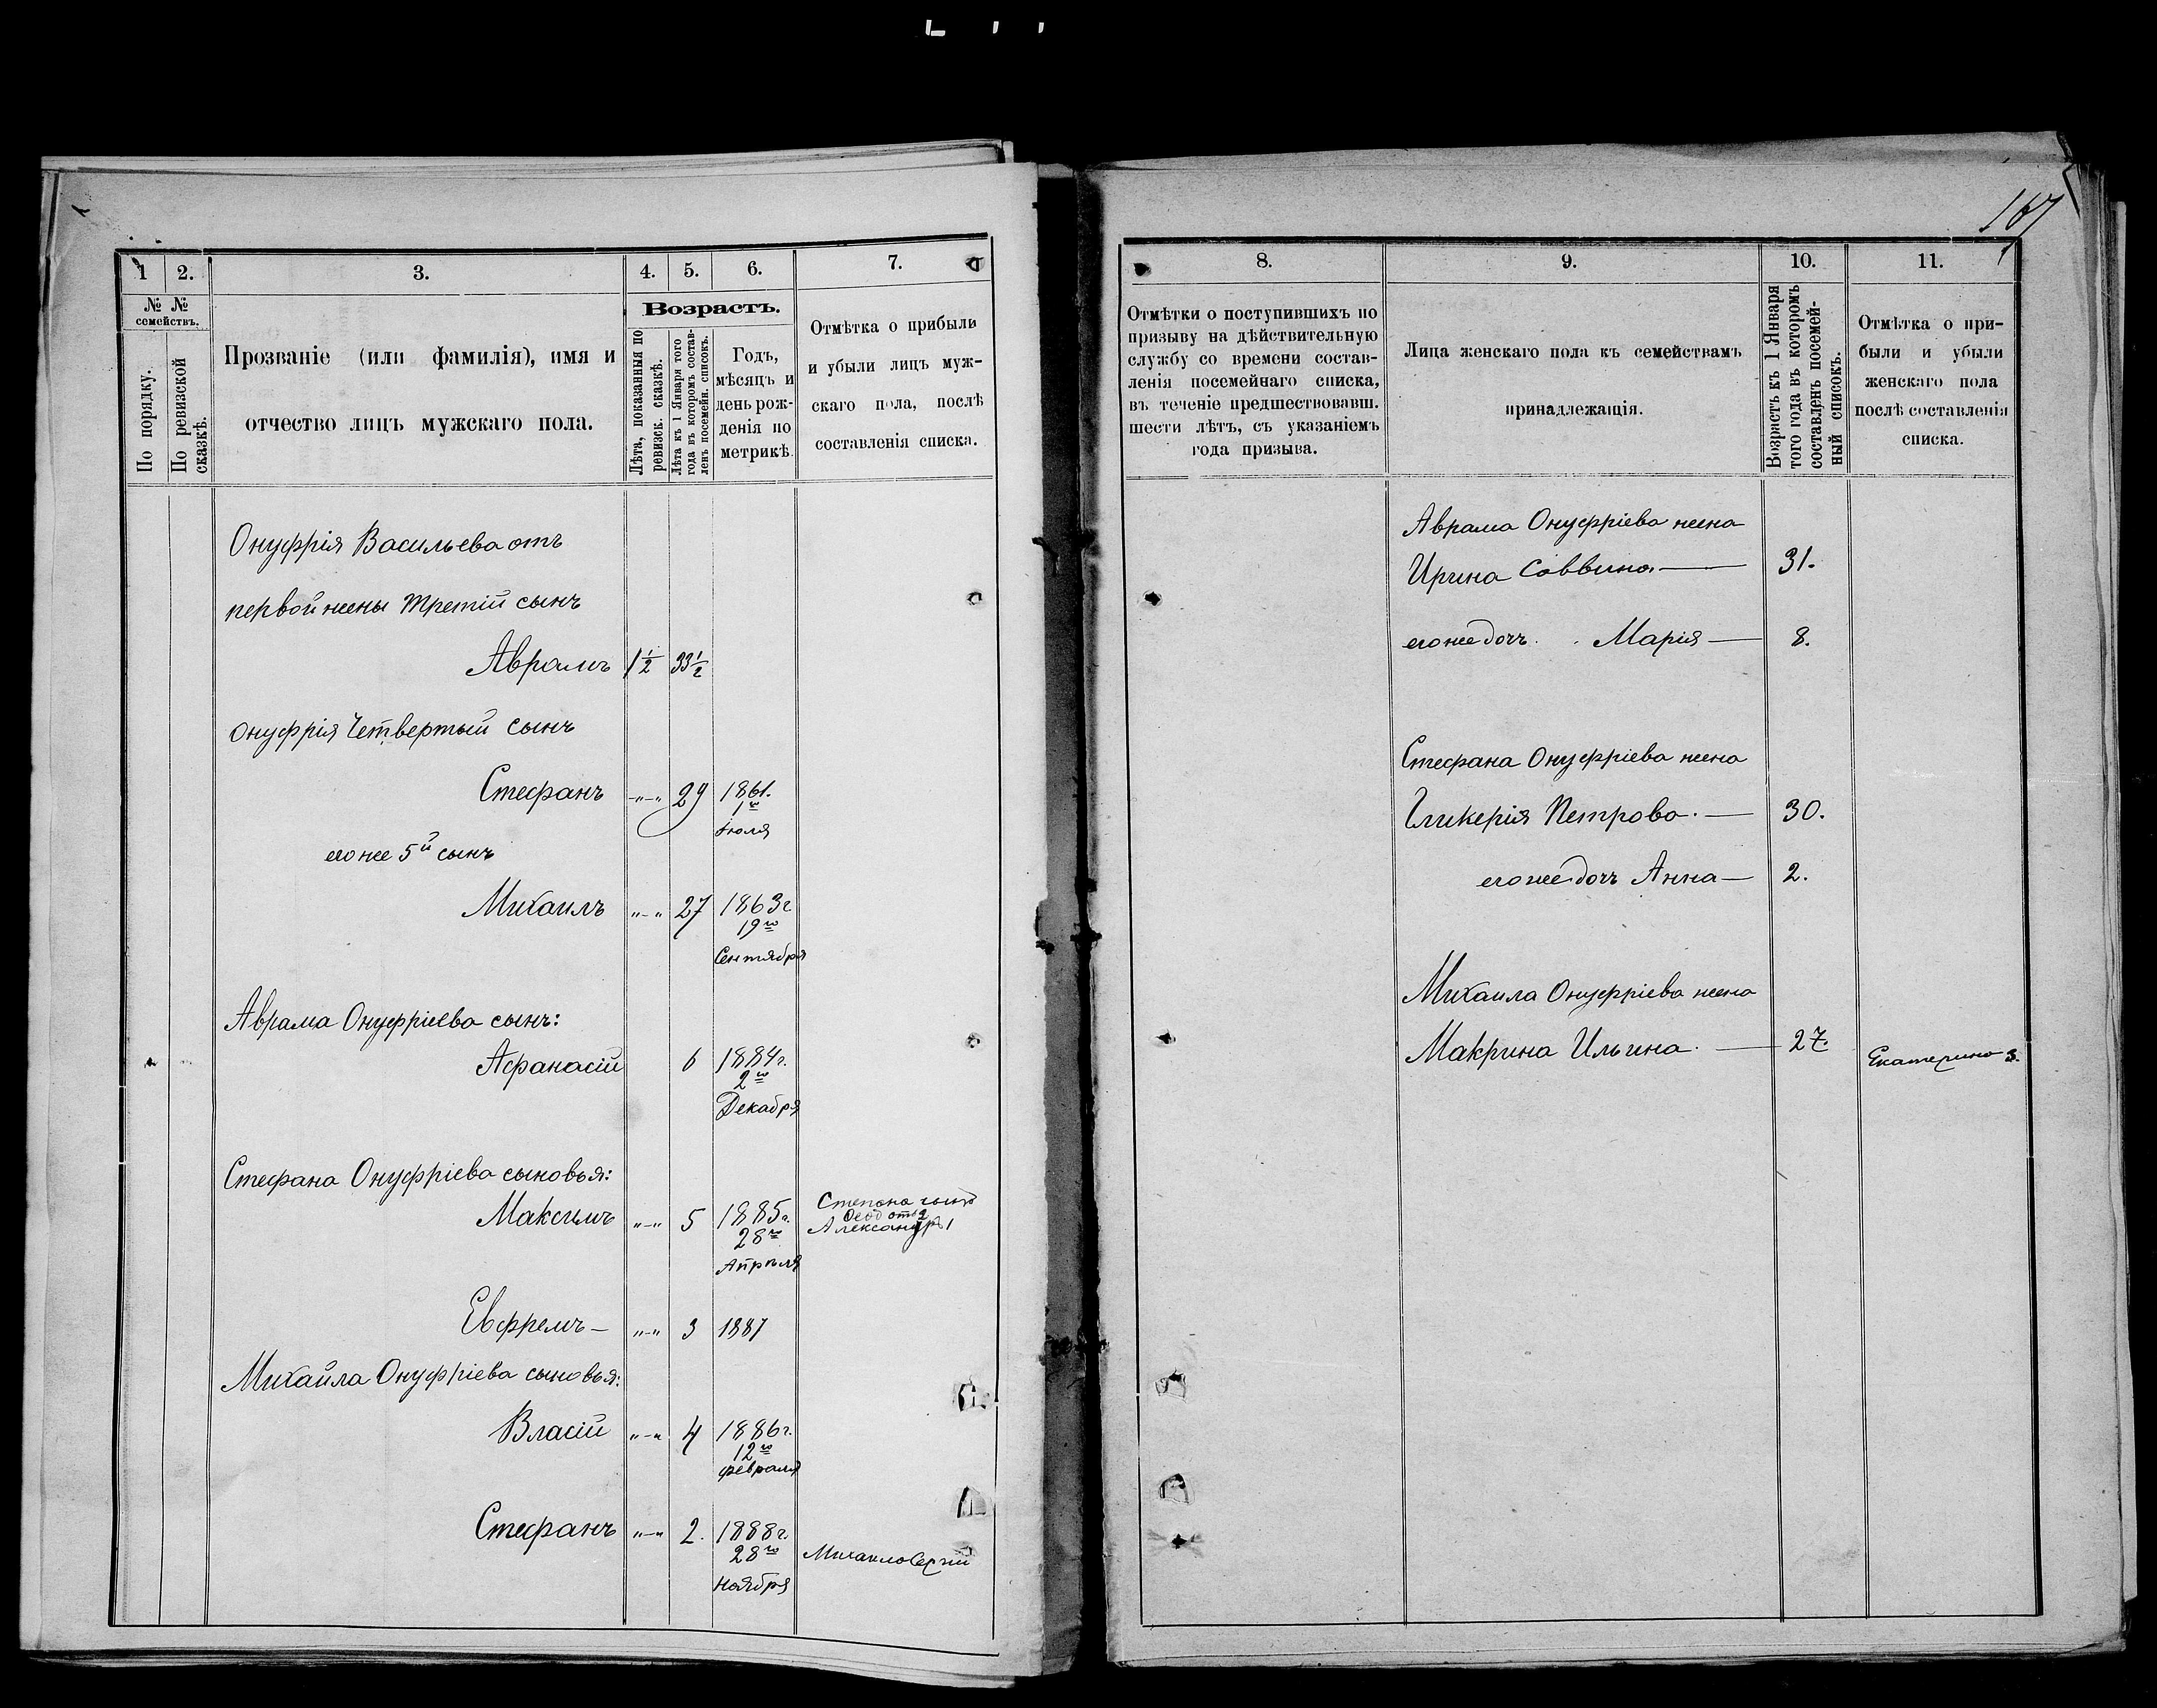 167
1
2.
3.
4.
5.
6.
7.
№ №
семействъ.
По порядку.
По ревизской
сказкѣ.
Прозваніе (или фамилія), имя и
отчество лицъ мужскаго пола.
Возрастъ.
Лѣта, показанныя по
ревизск. сказкѣ.
Лѣта къ 1 Января того
года въ которомъ состав-
ленъ посемейн. списокъ.
Годъ,
мѣсяцъ и
день рож-
денія по
метрикѣ.
Отмѣтка о прибыли
и убыли лицъ муж-
скаго пола, послѣ
составленія списка.
Онуфрія Васильева отъ
первой жены третій сынъ
Аврамъ 1½ 33½
Онуфрія Четвертый сынъ
Стефанъ „-„ 29 1861.
1го
Іюля
его же 5й сынъ
Михаилъ „-„ 27 1863г
19го
Сентября
Аврама Онуфріева сынъ:
Афанасій 6 1884г.
2го
Декабря
Стефана Онуфріева сыновья:
Максимъ „-„ 5 1885г.
28го
Апрѣля
Степана сынъ
Александръ 1
Евфремъ – „-„ 3 1887
Михаила Онуфріева сыновья:
Власій „-„ 4 1886г.
12го
февраля
Стефанъ „-„ 2. 1888г.
28го
Ноября
Михаило Сергій
8.
9.
10.
11.
Отмѣтки о поступившихъ по
призыву на дѣйствительную
службу со времени состав-
ленія посемейнаго списка,
въ теченіе предшествовавш.
шести лѣтъ, съ указаніемъ
года призыва.
Лица женскаго пола къ семействамъ
принадлежащія.
Возрастъ къ 1 Января
того года въ которомъ
составленъ посемей-
ный списокъ.
Отмѣтка о при-
были и убыли
женскаго пола
послѣ составленія
списка.
Аврама Онуфріева жена
Ирина Саввина. — 31.
его же дочь. . Марія — 8.
Стефана Онуфріева жена
Гликерія Петрова. — 30.
его же дочь Анна — 2.
Михаила Онуфріева жена
Макрина Ильина. — 27.
Екатерина 3.